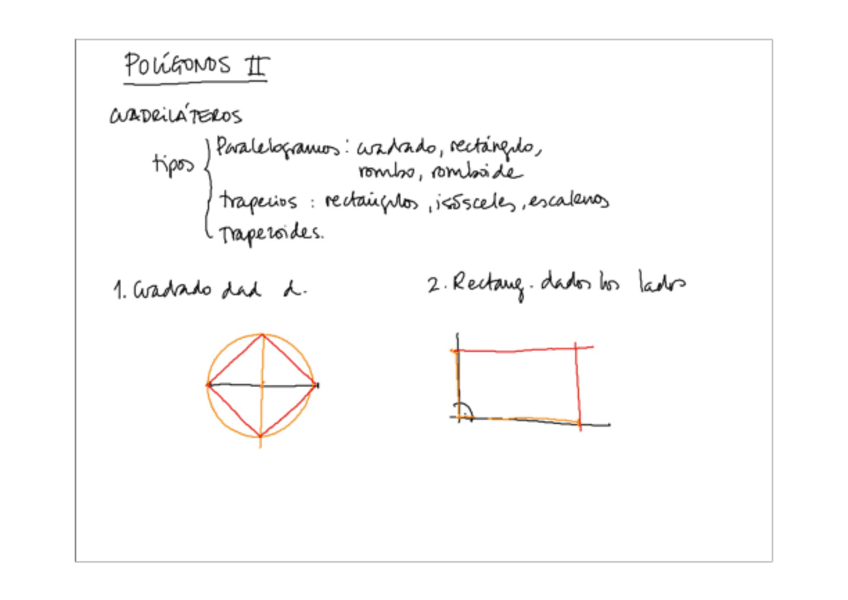 POLÍGONOS II
CUADRILÁTEROS
tipos
Paralelogramos: cuadrado, rectángulo,
rombo, romboide
trapecios : rectángulos, isósceles, escalenos
Trapezoides.
1. Cuadrado dad d.
2. Rectang. dados los lados